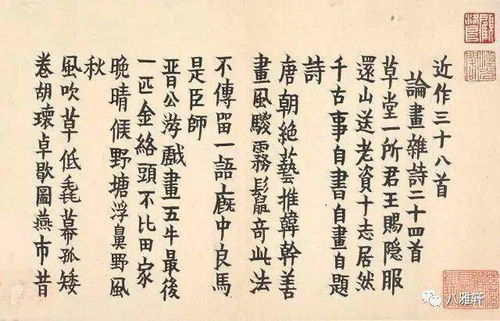 近作三十八首
論畫雜詩二十四首
草堂一所君王賜隱服
還山送老資十志居然
千古事自書自畫自題
詩
唐朝絶藝推韓幹善
畫風駿霧鬣奇此法
不傳留一語厩中良馬
是臣師
晉公游戲畫五牛最後
一匹金絡頭不比田家
晚晴候野塘浮鼻野風
秋
風吹草低毳幕孤矮
卷胡瓌卓歇圖燕市昔
八雅轩